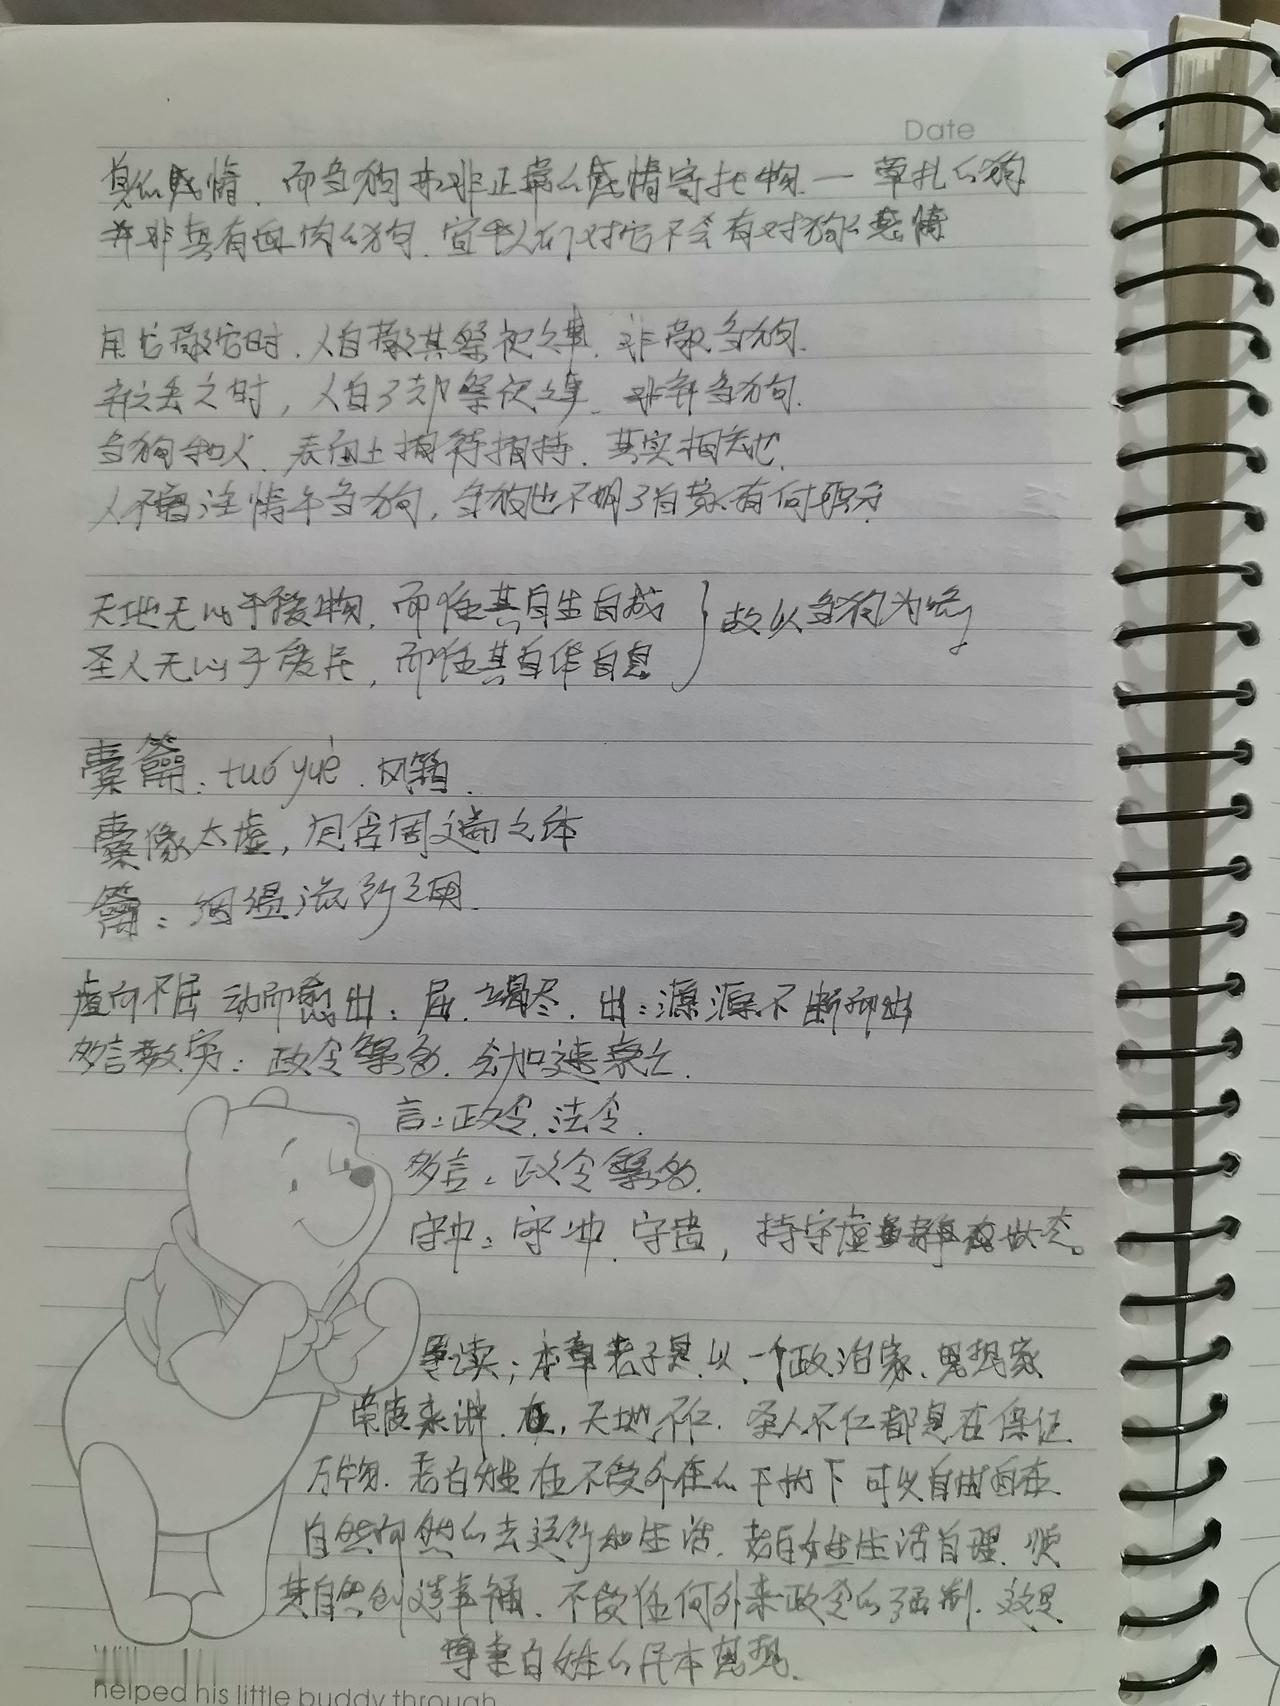 Date
真的感情、而刍狗并非正常的感情寄托物 — 草扎的狗
并非真有血肉的狗、宜乎人们对它不会有对狗的感情
用它敬它时、人自敬其祭祀之事、非敬刍狗、
弃之丢之时，人自了却祭祀之事、非弃刍狗、
刍狗和人、表面上相待相持、其实相忘也、
人不曾注情于刍狗，刍狗也不明了自家有何职分
天地无心于爱物，而任其自生自成
圣人无心于爱民，而任其自作自息
故以刍狗为喻
橐籥：tuó yuè、风箱、
橐像太虚，包含周遍之体
籥：絪缊流行之用、
虚而不屈 动而愈出：屈、竭尽、出：源源不断而出
多言数穷：政令繁多、会加速衰亡、
言：政令、法令、
多言：政令繁多、
守中：守冲、守虚，持守虚静的状态。
导读：本章老子是以一个政治家、思想家
角度来讲、天地不仁、圣人不仁都是在保证
万物、老百姓在不受外在的干扰下可以自由自在
自然而然的去运行和生活、老百姓生活自理、顺
其自然创造幸福、不受任何外来政令的强制、这是
尊重百姓的民本思想、
helped his little buddy through